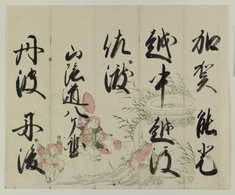 加賀 能登
越中 越後
佐渡
山陰道八ケ国
丹波 丹後